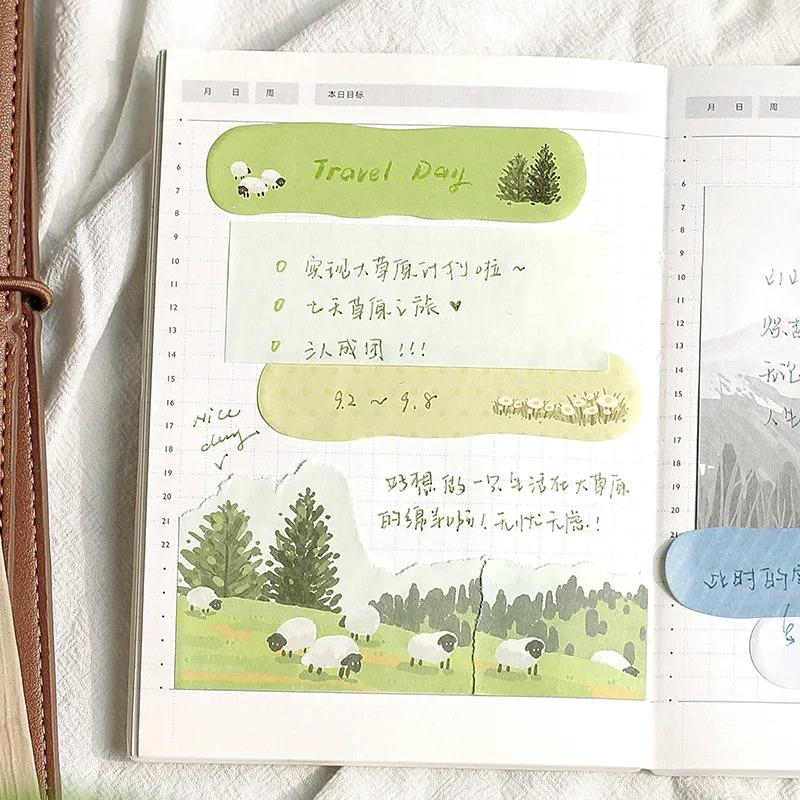 月 日 周 本日目标
Travel Day
实现大草原计划啦~
七天草原之旅♥
3人成团!!!
9.2 ~ 9.8
Nice
day
好想做一只生活在大草原
的绵羊啊!无忧无虑!
5
6
7
8
9
10
11
12
13
14
15
16
17
18
19
20
21
22
月 日 周
6
7
8
9
10
11
12
13
14
15
16
17
18
19
20
21
此时的